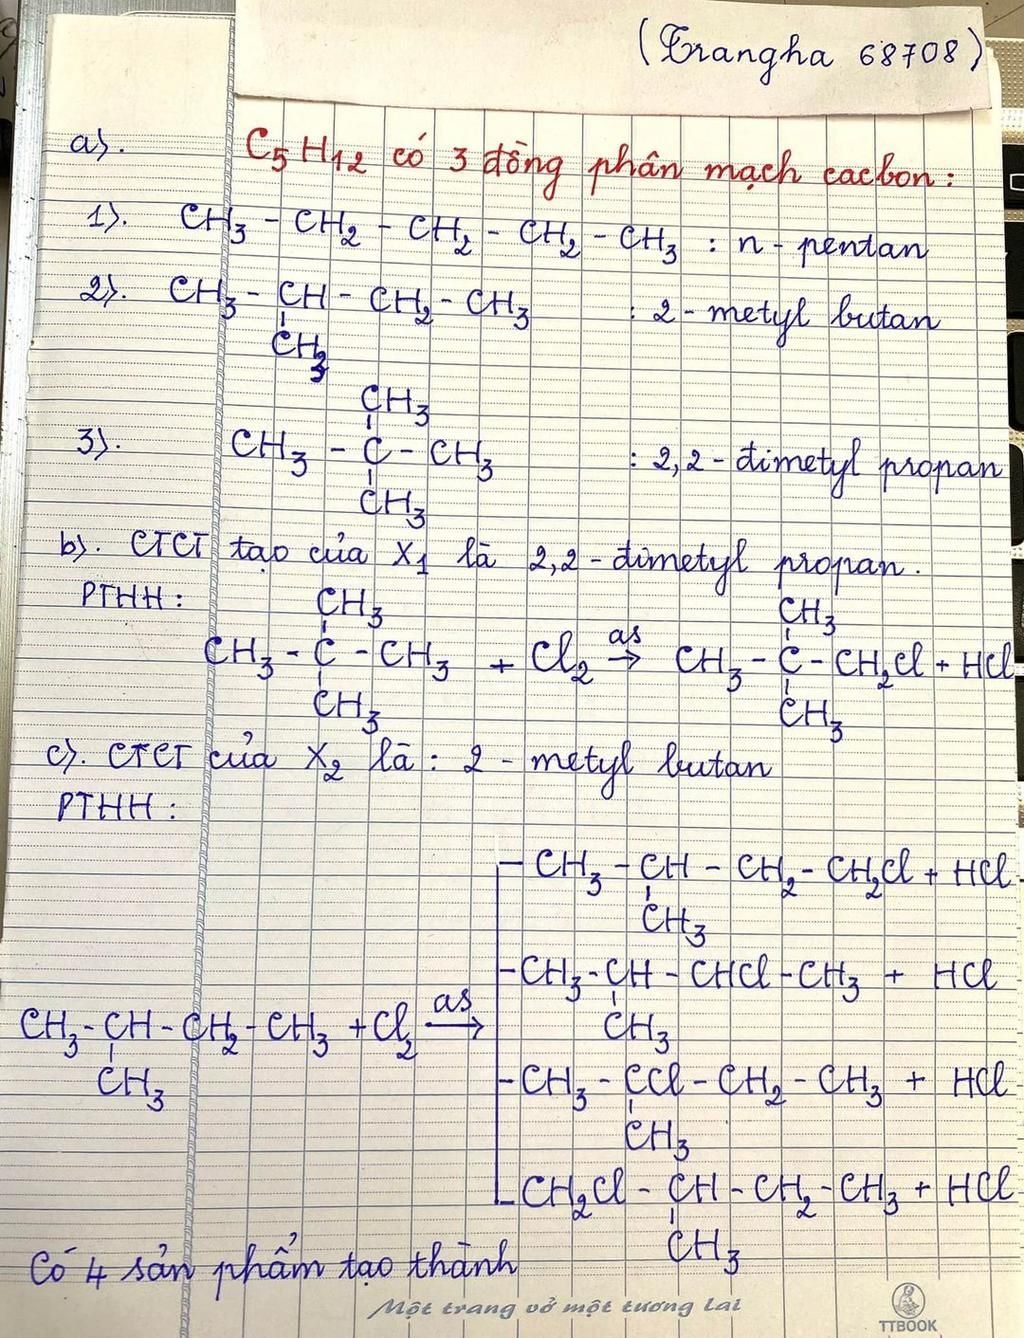 (Trangha 68708)
a). C5H12 có 3 đồng phân mạch cacbon:
1). CH3 - CH2 - CH2 - CH2 - CH3 : n - pentan
2). CH3 - CH - CH2 - CH3 : 2 - metyl butan
CH3
CH3
3). CH3 - C - CH3 : 2,2 - đimetyl propan
CH3
b). CTCT tạo của X1 là 2,2 - đimetyl propan.
PTHH:
CH3 CH3
CH3 - C - CH3 + Cl2 as → CH3 - C - CH2Cl + HCl
CH3 CH3
c). CTCT của X2 là : 2 - metyl butan
PTHH:
- CH3 - CH - CH2 - CH2Cl + HCl
CH3
- CH3 - CH - CHCl - CH3 + HCl
CH3
CH3 - CH - CH2 - CH3 + Cl2 as →
CH3
- CH3 - CCl - CH2 - CH3 + HCl
CH3
- CH2Cl - CH - CH2 - CH3 + HCl
CH3
Có 4 sản phẩm tạo thành
Một trang vở một tương lai
TTBOOK